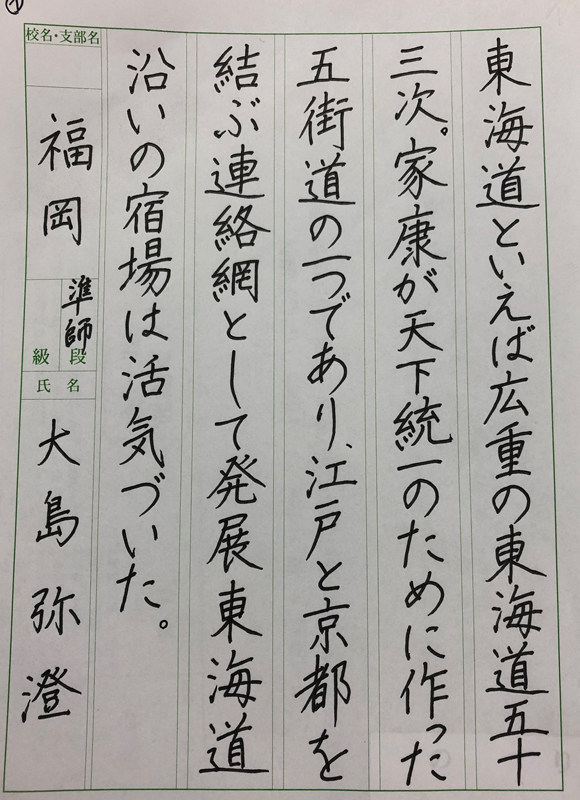 ①
東海道といえば広重の東海道五十
三次。家康が天下統一のために作った
五街道の一つであり、江戸と京都を
結ぶ連絡網として発展東海道
沿いの宿場は活気づいた。
校名・支部名
福岡
準師
級 段
氏名
大島弥澄